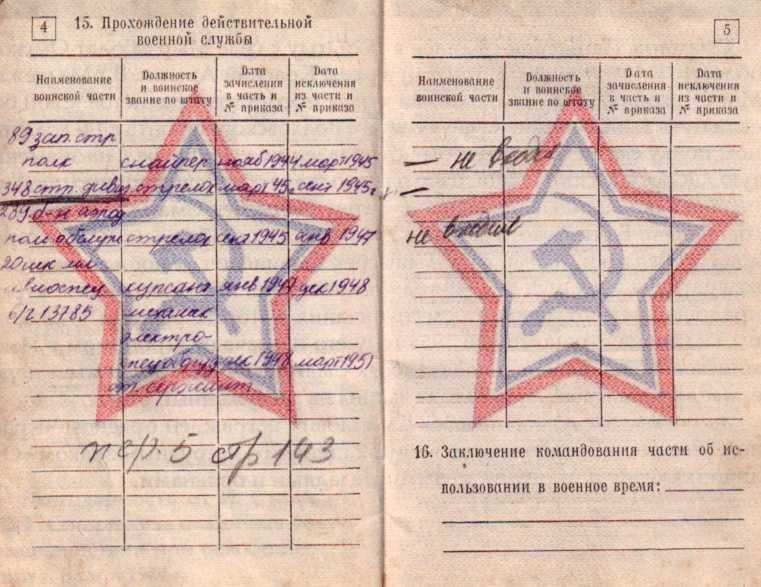 4
15. Прохождение действительной
военной службы
Наименование
воинской части
Должность
и воинское
звание по штату
Дата
зачисления
в часть и
№ приказа
Дата
исключения
из части и
№ приказа
89 зап. стр
полк снайпер нояб 1944 март 1945
348 стр. дивиз стрелок март 45 сент 1945
289 б-н аэрод
стрелок сент 1945 янв 1947
20
курсант янв 1947 дек 1948
в/ч 13785 механик
электро-
дек 1948 март 1951
пер. 5 стр 143
5
Наименование
воинской части
Должность
и воинское
звание по штату
Дата
зачисления
в часть и
№ приказа
Дата
исключения
из части и
№ приказа
— не входил
—
не входил
16. Заключение командования части об ис-
пользовании в военное время: